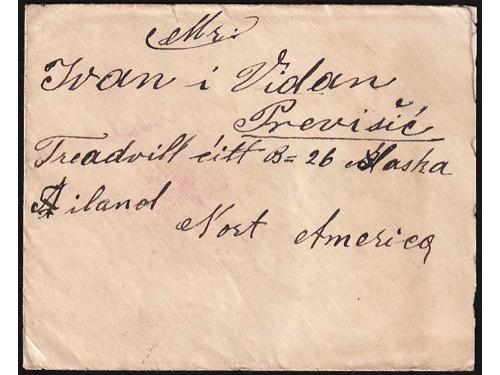 Mr:
Ivan i Vidan
Previšić
Treadvill čitt B= 26 Alaska
A iland
Nort America